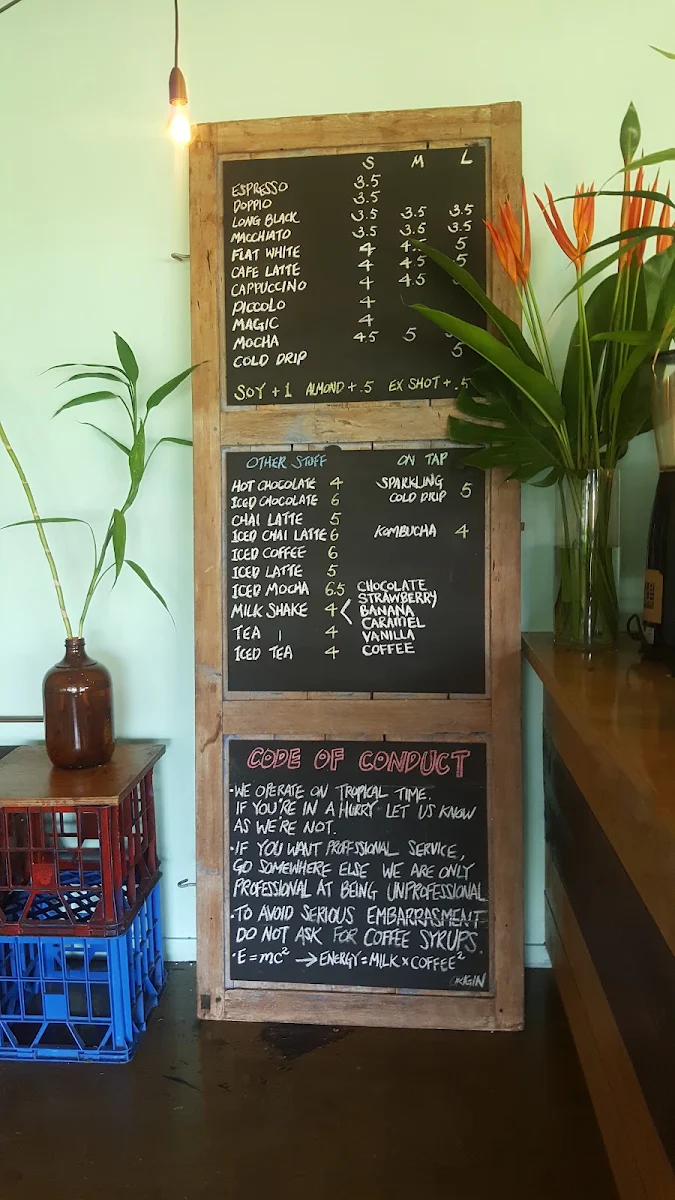 S M L
ESPRESSO 3.5
DOPPIO 3.5
LONG BLACK 3.5 3.5 3.5
MACCHIATO 3.5 3.5 3.5
FLAT WHITE 4 4.5 5
CAFE LATTE 4 4.5 5
CAPPUCCINO 4 4.5
PICCOLO 4
MAGIC 4
MOCHA 4.5 5
COLD DRIP 5
SOY + 1 ALMOND + .5 EX SHOT + .5
OTHER STUFF
HOT CHOCOLATE 4
ICED CHOCOLATE 6
CHAI LATTE 5
ICED CHAI LATTE 6
ICED COFFEE 6
ICED LATTE 5
ICED MOCHA 6.5
MILK SHAKE 4
CHOCOLATE
STRAWBERRY
BANANA
CARAMEL
VANILLA
COFFEE
TEA 4
ICED TEA 4
ON TAP
SPARKLING
COLD DRIP 5
KOMBUCHA 4
CODE OF CONDUCT
·WE OPERATE ON TROPICAL TIME.
IF YOU'RE IN A HURRY LET US KNOW
AS WE'RE NOT.
·IF YOU WANT PROFESSIONAL SERVICE,
GO SOMEWHERE ELSE WE ARE ONLY
PROFESSIONAL AT BEING UNPROFESSIONAL
·TO AVOID SERIOUS EMBARRASMENT
DO NOT ASK FOR COFFEE SYRUPS
·E=mc² → ENERGY = MILK × COFFEE²
ORIGIN